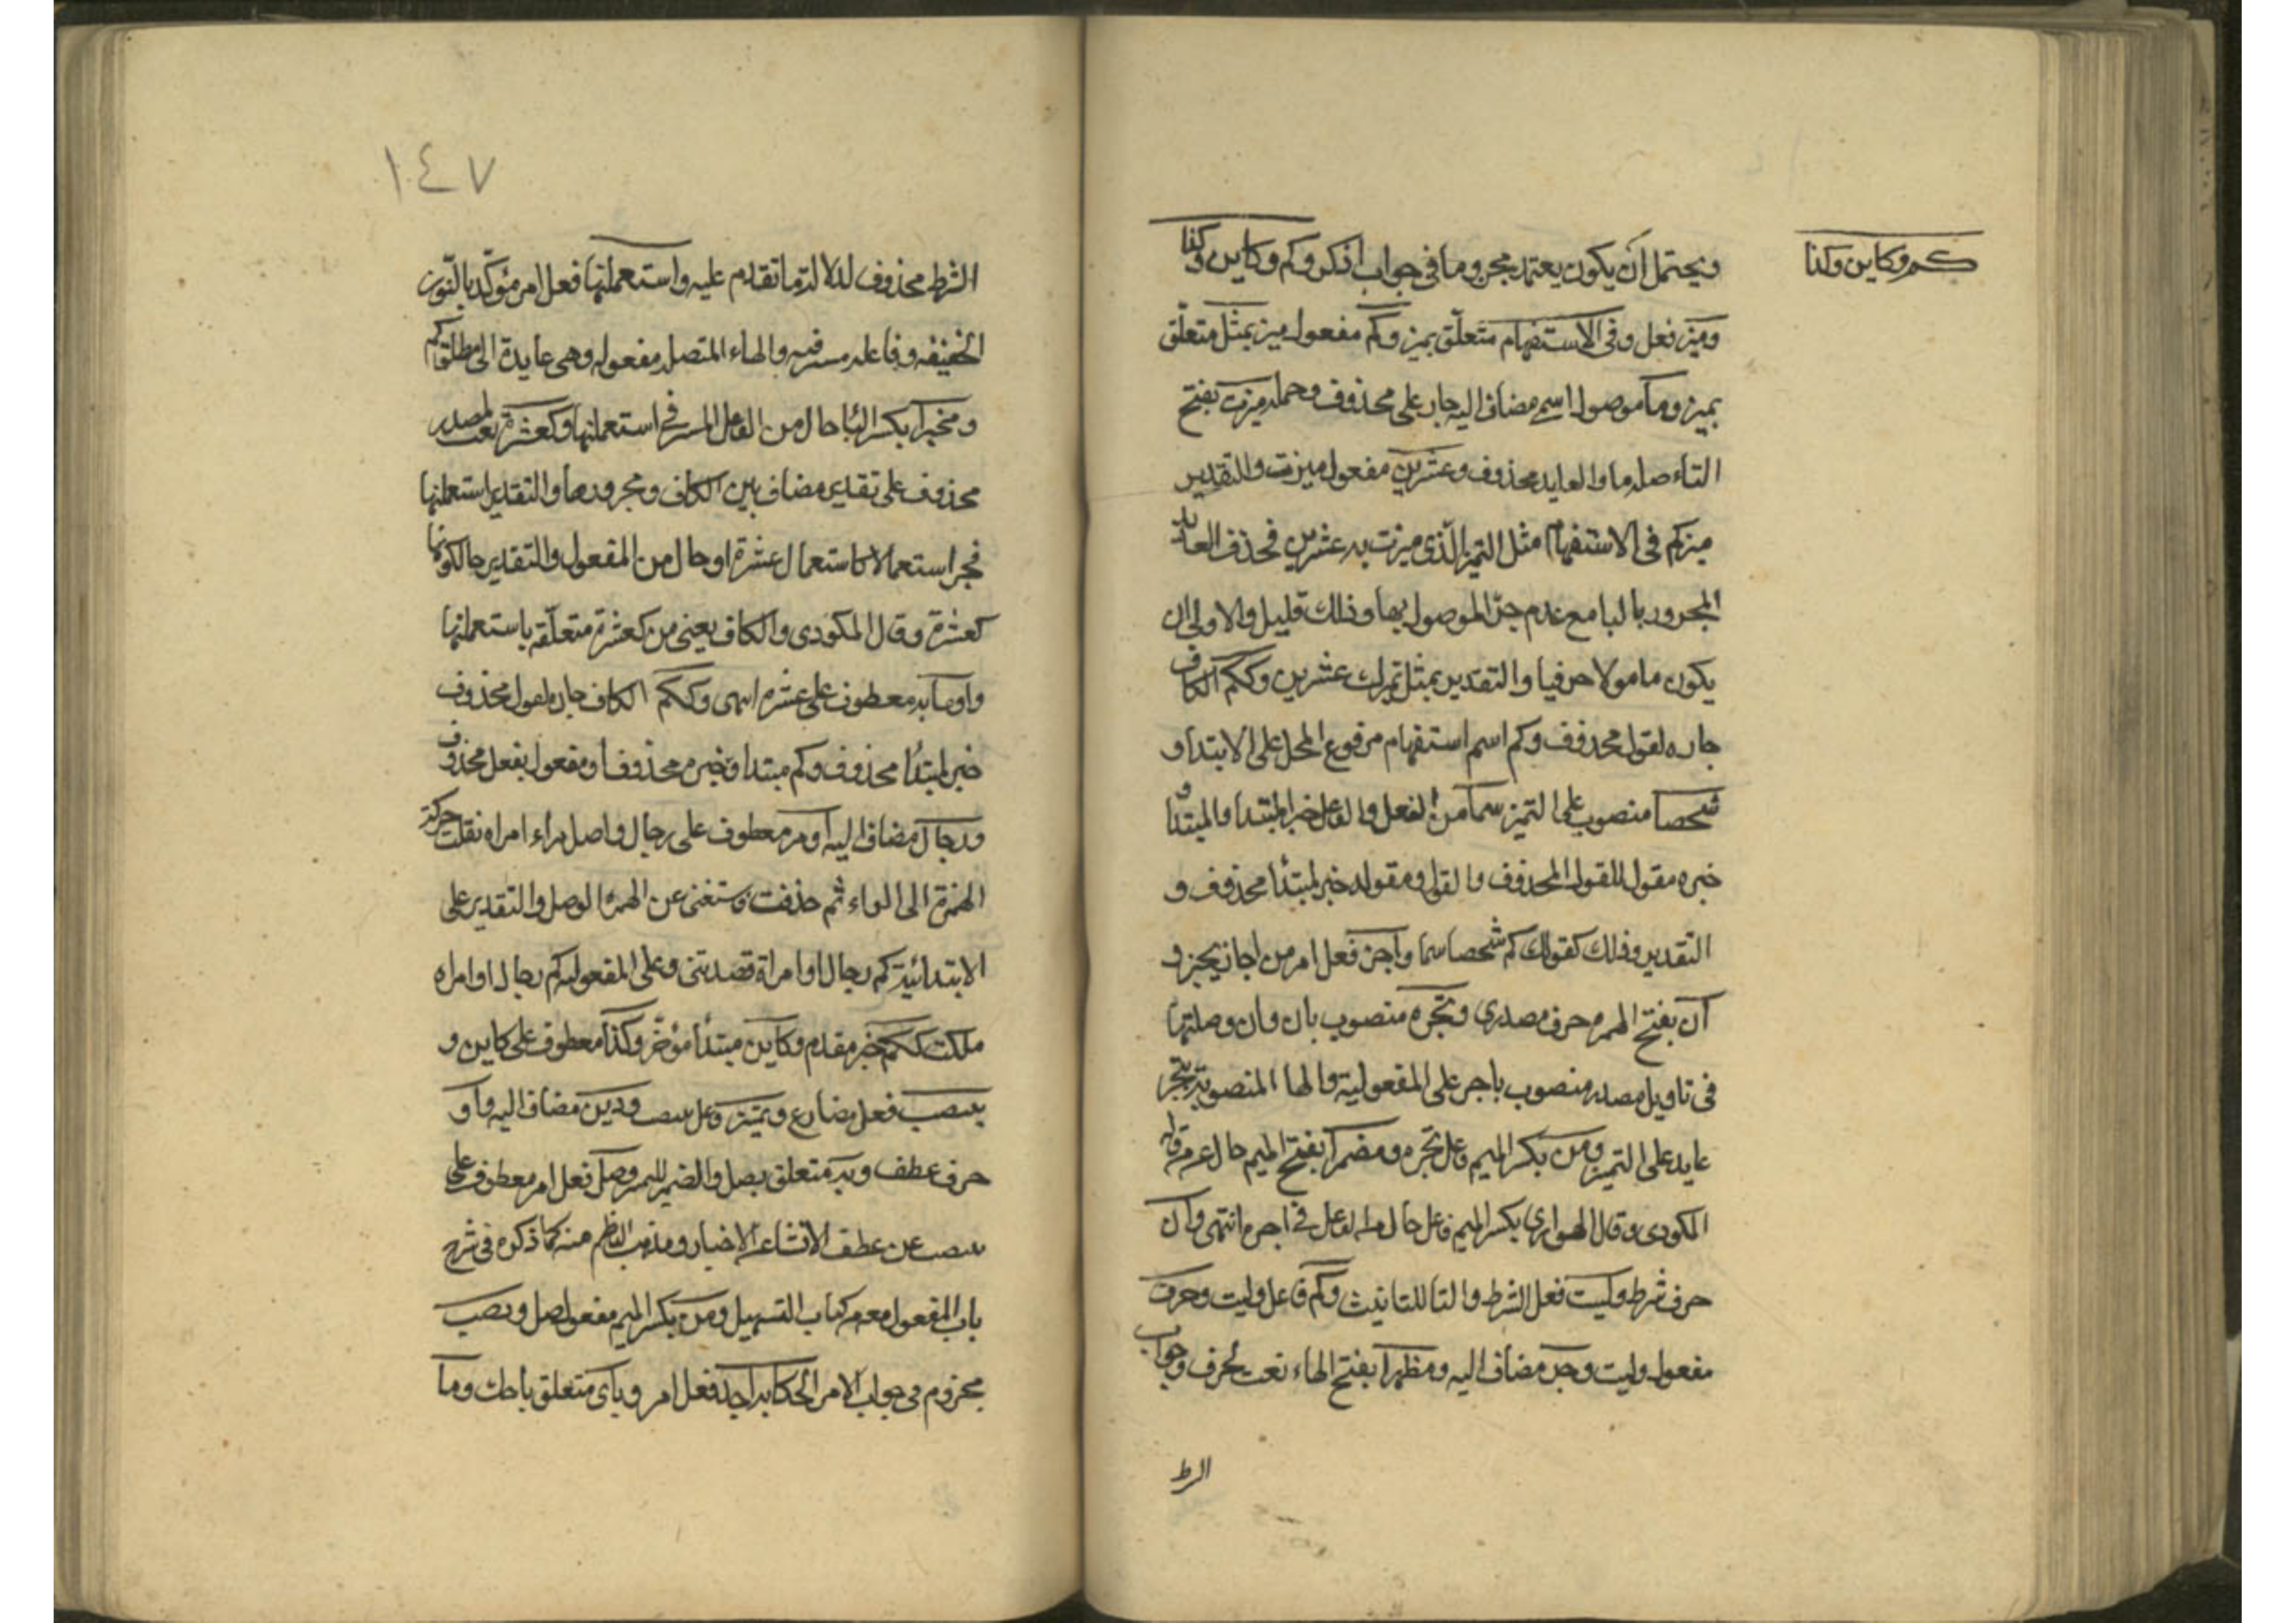 كم وكاين وكذا
ويحتمل ان يكون يعتمد مجزوما في جواب اذكر وكم وكاين وكذا
وميز فعل وفي الاستفهام متعلق بميز وكم مفعول ميز بمثل متعلق
بميز وما موصول اسم مضاف اليه جار على محذوف وجمله ميزت بفتح
التاء صله ما والعايد محذوف وعشرين مفعول ميزت والتقدير
ميز كم في الاستفهام مثل التميز الذي ميزت به عشرين فحذف العايد
المجرور بالبا مع عدم جر الموصول بها وذلك قليل والاولى ان
يكون ما موولا حرفيا والتقدير بمثل تميزك عشرين وككم الكاف
جاره لقول محذوف وكم اسم استفهام مرفوع المحل على الابتدا و
شخصا منصوب على التميز سما من الفعل والفاعل خبر المبتدا والمبتدا و
خبره مقول للقول المحذوف والقول ومقوله خبر لمبتدأ محذوف و
التقدير وذلك كقولك كم شخصا سما واجز فعل امر من اجاز يجيز و
ان بفتح الهمزه حرف مصدري وتجره منصوب بان وان وصلتها
في تاويل مصدر منصوب باجز على المفعولية والها المنصوبة بتجر
عايد على التميز ومن بكسر الميم فاعل تجره ومضمرا بفتح الميم حال من من قاله
المكودي وقال الهواري بكسر الميم فاعل حال من الفاعل في اجز انتهى وان
حرف شرط وليت فعل الشرط والتا للتانيث وكم فاعل وليت وحرف
مفعول وليت وجر مضاف اليه ومظهرا بفتح الهاء نعت لحرف وجواب
الرط
١٤٧
الشرط محذوف لدلالة ما تقدم عليه واستعملنها فعل امر مؤكد بالنون
الخفيفه وفاعله مستتر فيه والهاء المتصله مفعوله وهي عايدة الى مطلق كم
ومخبرا بكسر البا حال من الفاعل المستتر في استعملنها وكعشرة نعت لمصدر
محذوف على تقدير مضاف بين الكاف ومجرورها والتقدير استعملنها
مخبر استعمالا كاستعمال عشرة او حال من المفعول والتقدير حال كونها
كعشرة وقال المكودي والكاف يعني من كعشرة متعلقه باستعملنها
واو مايه معطوف على عشره انتهى وككم الكاف جاره لقول محذوف
خبر لمبتدأ محذوف وكم مبتدا وخبره محذوف او مفعول بفعل محذوف
ورجال مضاف اليه او مره معطوف على رجال واصل مراه امراه نقلت حركة
الهمزة الى الراء ثم حذفت واستغنى عن الهمزه الوصل والتقدير على
الابتدائية كم رجال او امراة قصدتني وعلى المفعوليه كم رجال او امراه
ملكت ككم خبر مقدم وكاين مبتدأ مؤخر وكذا معطوف على كاين و
ينتصب فعل مضارع وتمييز فاعل ينتصب وذين مضاف اليه واو
حرف عطف وبه متعلق بصل والضمير للتميز وصل فعل امر معطوف على
ينتصب من عطف الانشا على الاخبار ومذهب الناظم منه كما ذكره في شرح
باب المفعول معه من كتاب التسهيل ومن بكسر الميم مفعول صل ويصب
مجزوم في جواب الامر الحكاية احك فعل امر وباى متعلق باحك وما